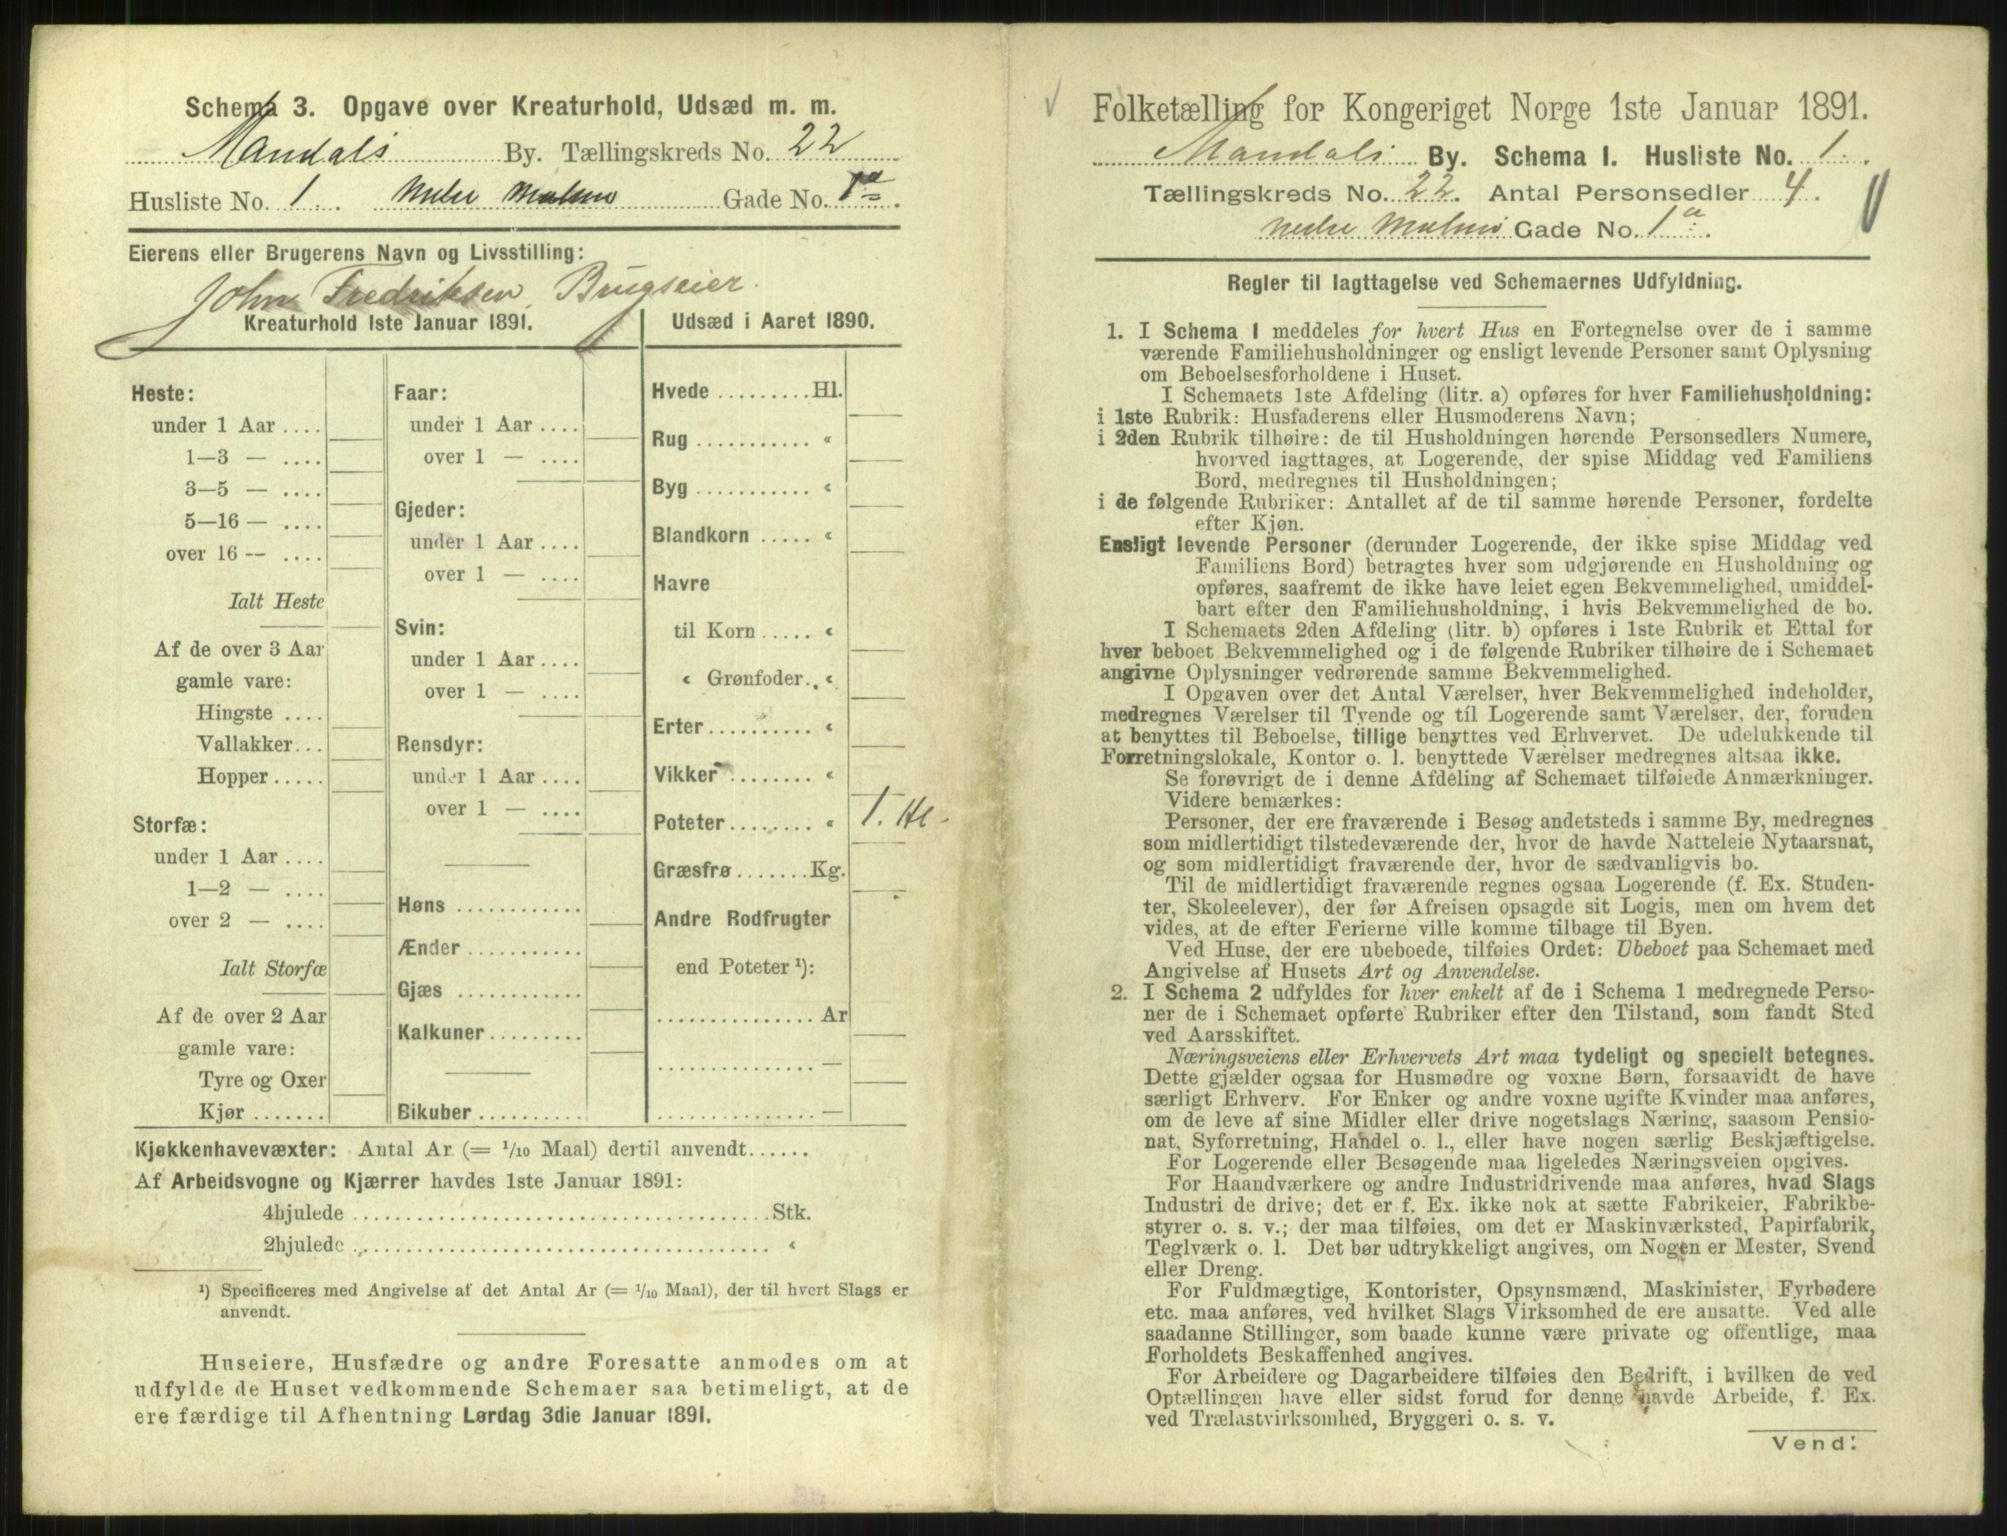 Schema 3. Opgave over Kreaturhold, Udsæd m. m.
Mandals By. Tællingskreds No. 22
Husliste No. 1. Nedre Malmø Gade No. 1a
Eierens eller Brugerens Navn og Livsstilling:
John Fredriksen, Brugseier.
Kreaturhold 1ste Januar 1891.
Heste:
under 1 Aar ....
1—3 — ....
3—5 — ....
5—16 — ....
over 16 — ....
Ialt Heste
Af de over 3 Aar
gamle vare:
Hingste ....
Vallakker...
Hopper .....
Storfæ:
under 1 Aar ....
1—2 — ....
over 2 — ....
Ialt Storfæ
Af de over 2 Aar
gamle vare:
Tyre og Oxer
Kjør .......
Faar:
under 1 Aar ....
over 1 — ....
Gjeder:
under 1 Aar ....
over 1 — ....
Svin:
under 1 Aar ....
over 1 — ....
Rensdyr:
under 1 Aar ....
over 1 — ....
Høns ............
Ænder ...........
Gjæs ............
Kalkuner.........
Bikuber..........
Udsæd i Aaret 1890.
Hvede .........Hl.
Rug ........... «
Byg ........... «
Blandkorn ..... «
Havre
til Korn ..... «
« Grønfoder.. «
Erter.......... «
Vikker ........ «
Poteter........ « 1. Hl.
Græsfrø.......Kg.
Andre Rodfrugter
end Poteter ¹):
............... Ar
............... —
............... —
Kjøkkenhavevæxter: Antal Ar (= 1/10 Maal) dertil anvendt......
Af Arbeidsvogne og Kjærrer havdes 1ste Januar 1891:
4hjulede ......................................Stk.
2hjulede ...................................... «
¹) Specificeres med Angivelse af det Antal Ar (= 1/10 Maal), der til hvert Slags er
anvendt.
Huseiere, Husfædre og andre Foresatte anmodes om at
udfylde de Huset vedkommende Schemaer saa betimeligt, at de
ere færdige til Afhentning Lørdag 3die Januar 1891.
Folketælling for Kongeriget Norge 1ste Januar 1891.
Mandals By. Schema 1. Husliste No. 1.
Tællingskreds No. 22. Antal Personsedler 4.
Nedre Malmø Gade No. 1a.
Regler til Iagttagelse ved Schemaernes Udfyldning.
1. I Schema 1 meddeles for hvert Hus en Fortegnelse over de i samme
værende Familiehusholdninger og ensligt levende Personer samt Oplysning
om Beboelsesforholdene i Huset.
I Schemaets 1ste Afdeling (litr. a) opføres for hver Familiehusholdning:
i 1ste Rubrik: Husfaderens eller Husmoderens Navn;
i 2den Rubrik tilhøire: de til Husholdningen hørende Personsedlers Numere,
hvorved iagttages, at Logerende, der spise Middag ved Familiens
Bord, medregnes til Husholdningen;
i de følgende Rubriker: Antallet af de til samme hørende Personer, fordelte
efter Kjøn.
Ensligt levende Personer (derunder Logerende, der ikke spise Middag ved
Familiens Bord) betragtes hver som udgjørende en Husholdning og
opføres, saafremt de ikke have leiet egen Bekvemmelighed, umiddel-
bart efter den Familiehusholdning, i hvis Bekvemmelighed de bo.
I Schemaets 2den Afdeling (litr. b) opføres i 1ste Rubrik et Ettal for
hver beboet Bekvemmelighed og i de følgende Rubriker tilhøire de i Schemaet
angivne Oplysninger vedrørende samme Bekvemmelighed.
I Opgaven over det Antal Værelser, hver Bekvemmelighed indeholder,
medregnes Værelser til Tyende og til Logerende samt Værelser, der, foruden
at benyttes til Beboelse, tillige benyttes ved Erhvervet. De udelukkende til
Forretningslokale, Kontor o. l. benyttede Værelser medregnes altsaa ikke.
Se forøvrigt de i denne Afdeling af Schemaet tilføiede Anmærkninger.
Videre bemærkes:
Personer, der ere fraværende i Besøg andetsteds i samme By, medregnes
som midlertidigt tilstedeværende der, hvor de havde Natteleie Nytaarsnat,
og som midlertidigt fraværende der, hvor de sædvanligvis bo.
Til de midlertidigt fraværende regnes ogsaa Logerende (f. Ex. Studen-
ter, Skoleelever), der før Afreisen opsagde sit Logis, men om hvem det
vides, at de efter Ferierne ville komme tilbage til Byen.
Ved Huse, der ere ubeboede, tilføies Ordet: Ubeboet paa Schemaet med
Angivelse af Husets Art og Anvendelse.
2. I Schema 2 udfyldes for hver enkelt af de i Schema 1 medregnede Perso-
ner de i Schemaet opførte Rubriker efter den Tilstand, som fandt Sted
ved Aarsskiftet.
Næringsveiens eller Erhvervets Art maa tydeligt og specielt betegnes.
Dette gjælder ogsaa for Husmødre og voxne Børn, forsaavidt de have
særligt Erhverv. For Enker og andre voxne ugifte Kvinder maa anføres,
om de leve af sine Midler eller drive nogetslags Næring, saasom Pensio-
nat, Syforretning, Handel o. l., eller have nogen særlig Beskjæftigelse.
For Logerende eller Besøgende maa ligeledes Næringsveien opgives.
For Haandværkere og andre Industridrivende maa anføres, hvad Slags
Industri de drive; det er f. Ex. ikke nok at sætte Fabrikeier, Fabrikbe-
styrer o. s. v.; der maa tilføies, om det er Maskinværksted, Papirfabrik,
Teglværk o. l. Det bør udtrykkeligt angives, om Nogen er Mester, Svend
eller Dreng.
For Fuldmægtige, Kontorister, Opsynsmænd, Maskinister, Fyrbødere
etc. maa anføres, ved hvilket Slags Virksomhed de ere ansatte. Ved alle
saadanne Stillinger, som baade kunne være private og offentlige, maa
Forholdets Beskaffenhed angives.
For Arbeidere og Dagarbeidere tilføies den Bedrift, i hvilken de ved
Optællingen have eller sidst forud for denne havde Arbeide, f. Ex.
ved Trælastvirksomhed, Bryggeri o. s. v.
Vend!